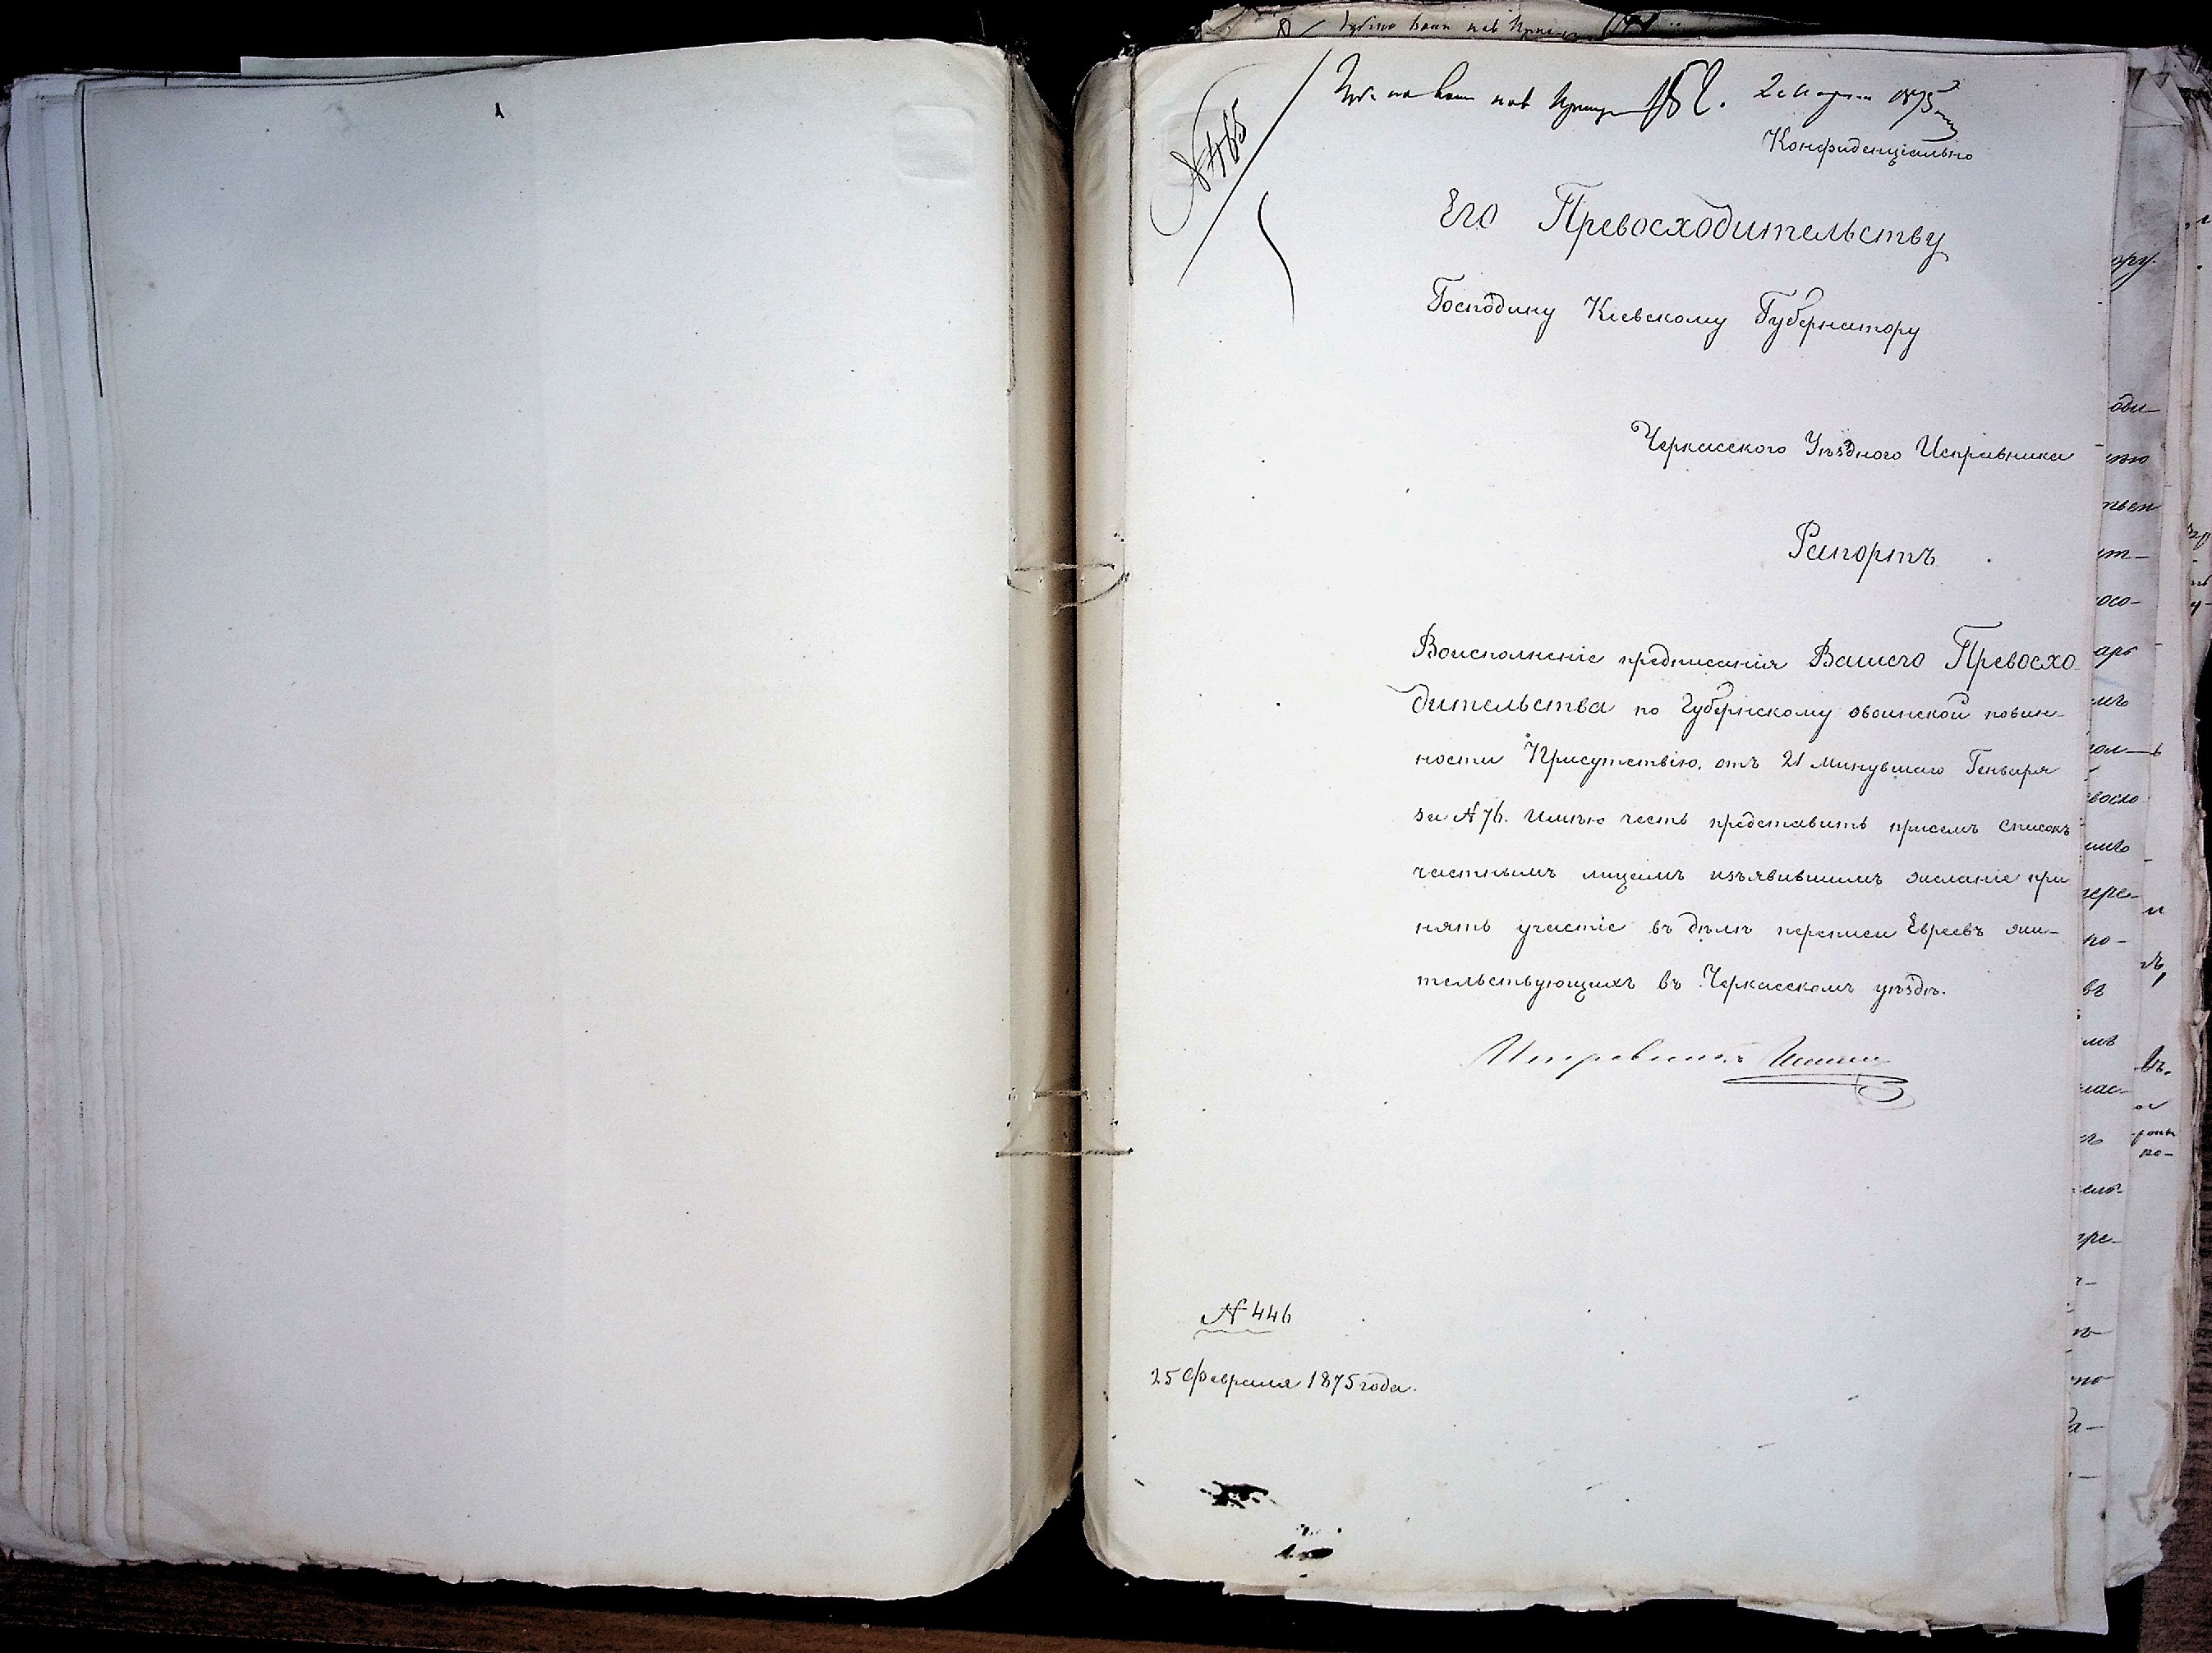 № 485
2 Марта 1875
Конфиденціально
Его Превосходительству
Господину Кіевскому Губернатору
Черкасского Уѣздного Исправника
Рапортъ
Воисполненіе предписанія Вашего Превосхо-
дительства по Губернскому овоинской повин-
ности Присутствію, отъ 21 минувшаго Генваря
за № 76. Имѣю честь представить присемъ списокъ
частнымъ лицамъ изъявившимъ желаніе при
нять участіе въ дѣлѣ переписи Евреевъ жи-
тельствующихъ въ Черкасскомъ уѣздѣ.
Исправникъ
№ 446
25 Февраля 1875 года.